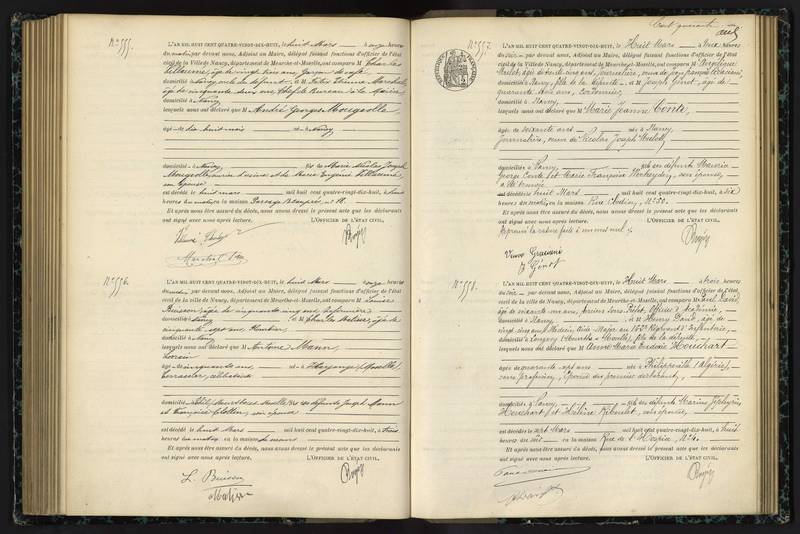 N° 555.
L'AN MIL HUIT CENT QUATRE-VINGT-DIX-HUIT, le huit Mars à onze heures
du matin par devant nous, Adjoint au Maire, délégué faisant fonctions d'officier de l'état
civil de la ville de Nancy, département de Meurthe-et-Moselle, ont comparu M Charles
âgé de vingt ans, Garçon de café,
domicilié à Nancy, du défunt et M Victor Etienne Marchal
âgé de cinquante deux ans, Chef de Bureau à la Mairie
domicilié à Nancy
lesquels nous ont déclaré que M André Georges Mougeolle
âgé de dix huit mois né à Nancy
domicilié à Nancy fils de Marie Nicolas Joseph
Mougeolle et de Marie Eugénie
son épouse
est décédé le huit mars mil huit cent quatre-vingt-dix-huit, à
heures du matin, en la maison Passage Beaupré, n°
Et après nous être assuré du décès, nous avons dressé le présent acte que les déclarants
ont signé avec nous après lecture. L'OFFICIER DE L'ÉTAT CIVIL,
N° 556.
L'AN MIL HUIT CENT QUATRE-VINGT-DIX-HUIT, le huit Mars à onze heures
du matin par devant nous, Adjoint au Maire, délégué faisant fonctions d'officier de l'état
civil de la ville de Nancy, département de Meurthe-et-Moselle, ont comparu M Louise
Buisson, âgée de cinquante cinq ans, infirmière
domicilié à Nancy et M Charles Matier, âgé de
cinquante sept ans,
domicilié à Nancy
lesquels nous ont déclaré que M Antoine Mann,
âgé de cinquante ans né à (Moselle)
Terrassier, célibataire
domicilié à fils des défunts Joseph Mann
et Françoise son épouse
est décédé le huit Mars mil huit cent quatre-vingt-dix-huit, à trois
heures du matin en la maison de secours
Et après nous être assuré du décès, nous avons dressé le présent acte que les déclarants
ont signé avec nous après lecture. L'OFFICIER DE L'ÉTAT CIVIL,
L. Buisson
Matier
Cent quarante
N° 557.
L'AN MIL HUIT CENT QUATRE-VINGT-DIX-HUIT, le Huit Mars à deux heures
du soir par devant nous, Adjoint au Maire, délégué faisant fonctions d'officier de l'état
civil de la ville de Nancy, département de Meurthe-et-Moselle, ont comparu M Angéline
âgée de trente cinq ans, journalière, veuve de Jean François Graciani
domiciliée à Nancy, fille de la défunte et M Joseph Génot, âgé de
quarante trois ans, cordonnier,
domicilié à Nancy
lesquels nous ont déclaré que M Marie Jeanne Conte,
âgée de soixante ans née à Nancy
journalière, veuve de Nicolas Joseph
domiciliée à Nancy fille des défunts Maurice
Georges Conte et Marie Françoise son épouse,
est décédée le huit Mars mil huit cent quatre-vingt-dix-huit, à six
heures du matin, en la maison Rue N° 50.
Et après nous être assuré du décès, nous avons dressé le présent acte que les déclarants
ont signé avec nous après lecture. L'OFFICIER DE L'ÉTAT CIVIL,
Approuvé la rature faite d'un mot nul
Veuve Graciani
J Génot
N° 558.
L'AN MIL HUIT CENT QUATRE-VINGT-DIX-HUIT, le Huit Mars à trois heures
du soir par devant nous, Adjoint au Maire, délégué faisant fonctions d'officier de l'état
civil de la ville de Nancy, département de Meurthe-et-Moselle, ont comparu M Paul David,
âgé de soixante un ans, ancien Sous-Préfet, Officier d'Académie,
domicilié à Nancy et M Henry David, âgé de
vingt cinq ans, Médecin, Aide Major au Régiment d'Infanterie,
domicilié à Longwy (Meurthe & Moselle), fils de la défunte,
lesquels nous ont déclaré que M Anne Marie Eudoxie Houchart
âgée de quarante sept ans née à Philippeville (Algérie),
sans profession, Épouse du premier déclarant,
domiciliée à Nancy fille des défunts Marius Zéphyrin
Houchart et Hélène Riboulet, son épouse,
est décédée le sept Mars mil huit cent quatre-vingt-dix-huit, à huit
heures du soir en la maison Rue de l'Hospice, N° 4.
Et après nous être assuré du décès, nous avons dressé le présent acte que les déclarants
ont signé avec nous après lecture. L'OFFICIER DE L'ÉTAT CIVIL,